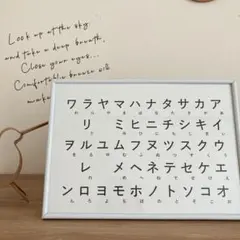 Look up at the sky
and take a deep breath,
Close your eyes...
Comfortable breeze will
make
ワラヤマハナタサカア
リ ミヒニチシキイ
ヲルユムフヌツスクウ
レ メヘネテセケエ
ンロヨモホノトソコオ